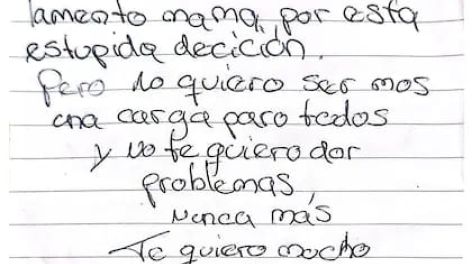 lamento mama, por esta
estupida decición.
Pero no quiero ser mas
una carga para todos
y no te quiero dar
problemas,
nunca más
Te quiero mucho